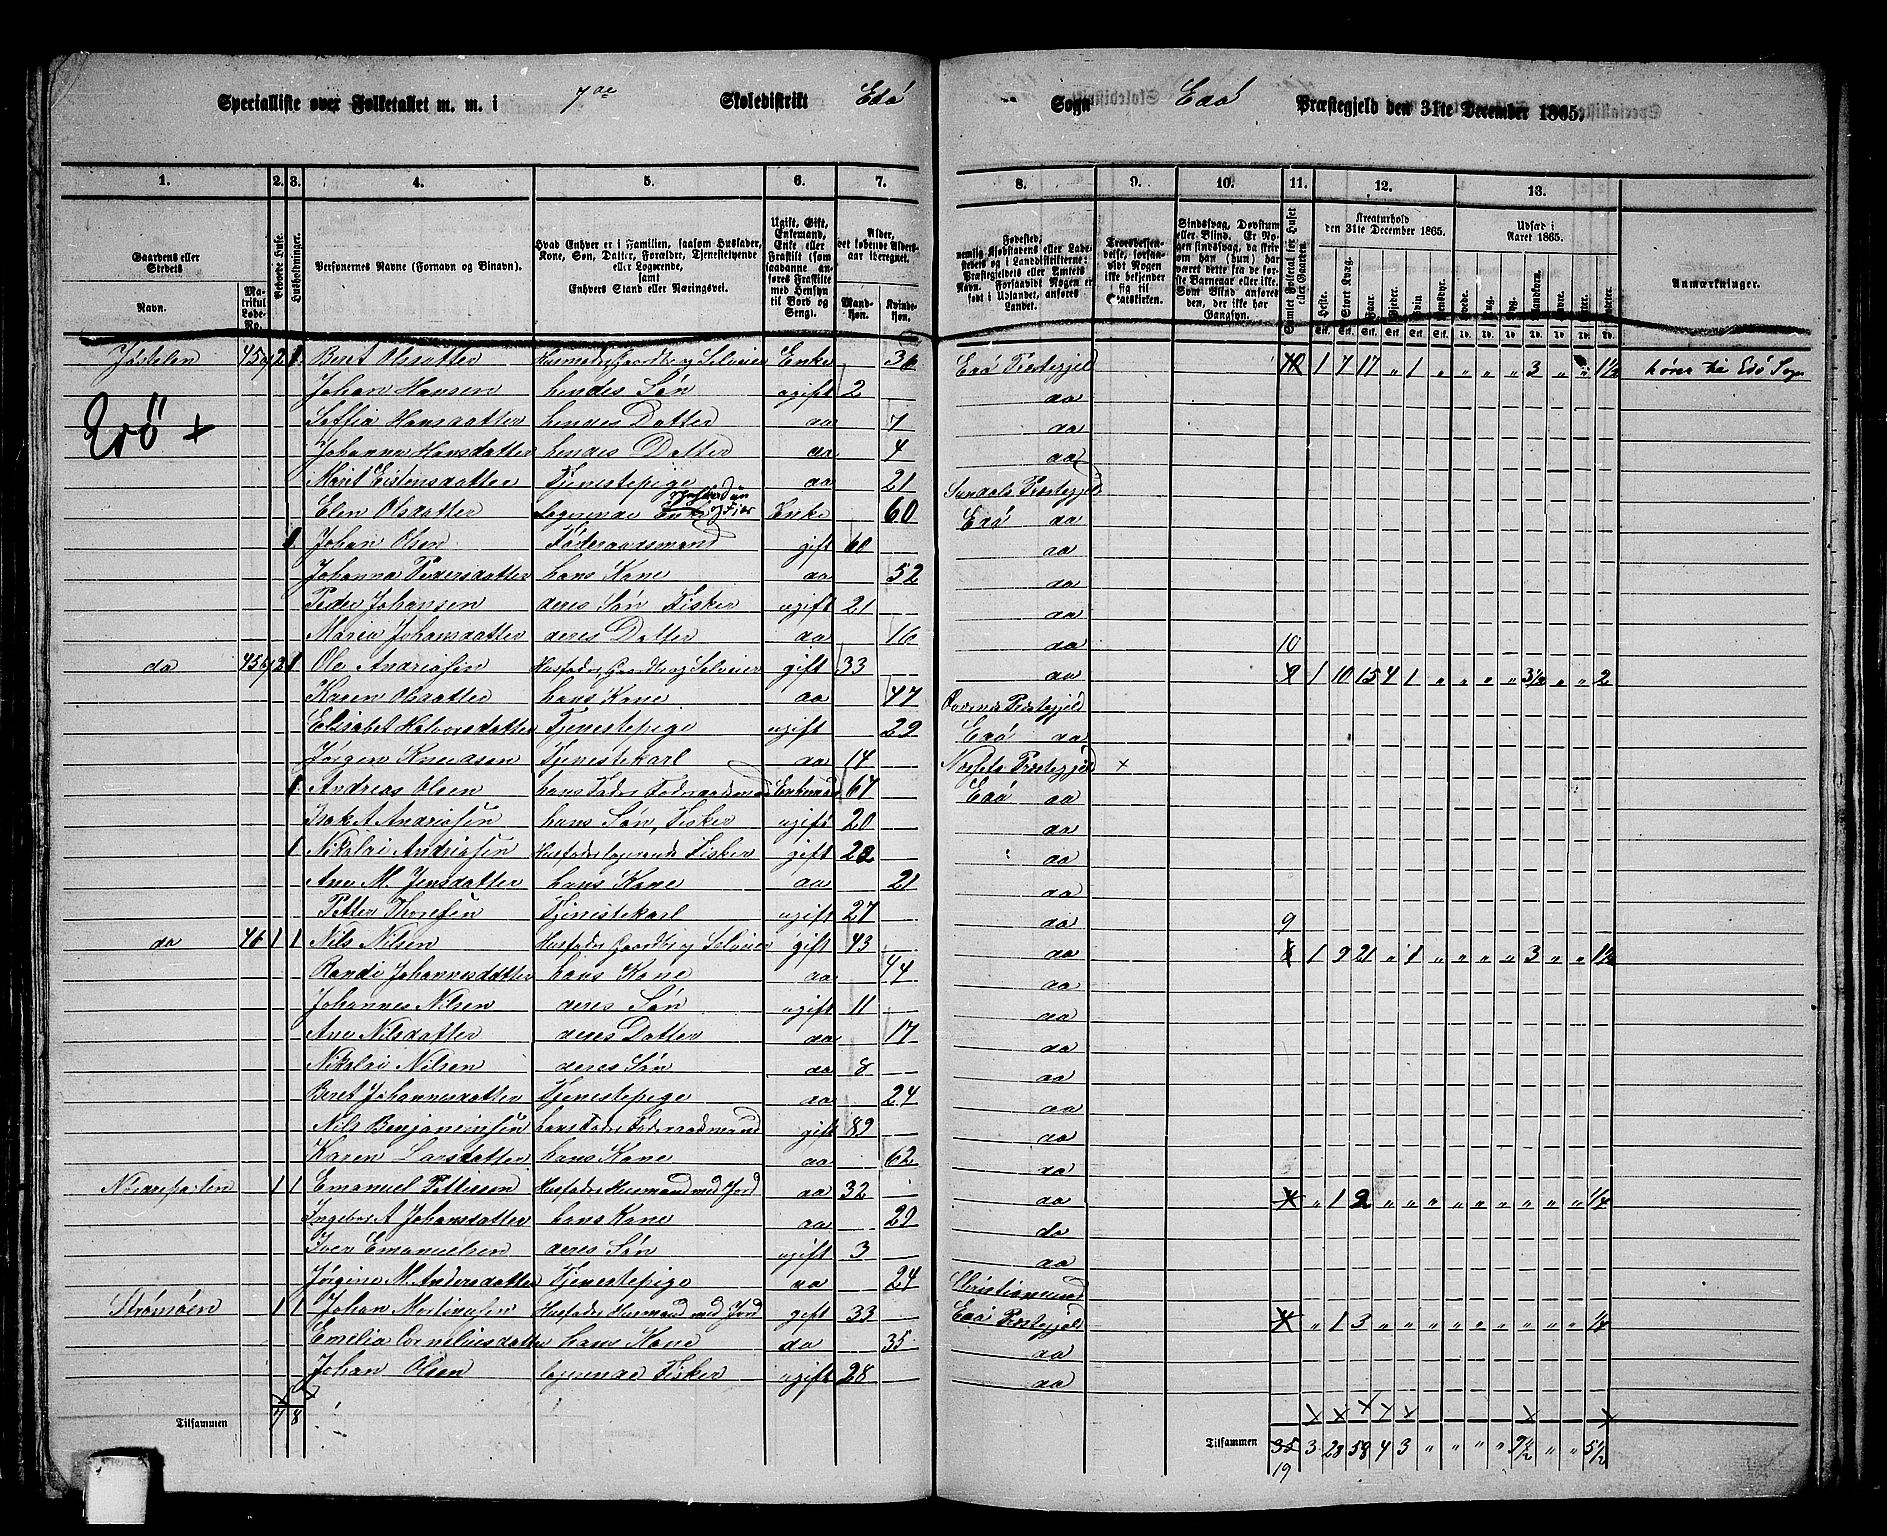 Specialliste over Folketallet m. m. i 7de Skoledistrikt Edø Sogn Edø Præstegjeld den 31te December 1865.
1. 2. 3. 4. 5. 6. 7. 8. 9. 10. 11. 12. 13.
Gaardens eller Stedets Navn. Matrikul Løbe-No. Beboede Huse. Husholdninger. Personernes Navne (Fornavn og Binavn). Hvad Enhver er i Familien, saasom Husfader, Kone, Søn, Datter, Forældre, Tjenestetyende eller Logerende, samt Enhvers Stand eller Næringsvei. Ugift, Gift, Enkemand, Enke eller Fraskilt (som saadanne anføres Fraskilte med Hensyn til Bord og Seng). Alder, det løbende Aldersaar iberegnet. Mandkjøn. Kvindekjøn.
Fødested, Troesbekjendelse, forsaavidt Nogen ikke bekjender sig til Statskirken. Samlet Folketal for Huset eller Gaarden. Kreaturhold den 31te December 1865. Udsæd i Aaret 1865. Anmærkninger.
Beret Olsdatter Enke 36 Edø Præstegjeld 10 1 7 17 „ 1 „ „ „ „ 3 „ „ 1½ hører til Edø Sogn
Johan Hansen hendes Søn ugift 2 da
Edø +
Soffia Hansdatter hendes Datter da 7 da
Johanna Hansdatter hendes Datter da 4 da
Marit Eistensdatter Tjenestepige da 21 Sundals Præstegjeld
Elen Olsdatter Logerende Enke 60 Edø da
1 Johan Olsen Føderaadsmand gift 60 da
Johanna Pedersdatter hans Kone da 52 da
Peder Johansen deres Søn Fisker ugift 21 da
Maria Johansdatter deres Datter da 16 da 10
da 1 Ola Andriasen Husfader, Gaardbr og Selveier gift 33 da 9 1 10 15 4 1 „ „ „ „ 3½ „ „ 2
Karen Olsdatter hans Kone da 47 Præstegjeld
Elisabet Halvorsdatter Tjenestepige ugift 29 Edø da
Jørgen Knudsen Tjenestekarl da 14 Præstegjeld +
1 Andreas Olsen hans Fader Føderaadsmand Enkemand 67 Edø da
Isak A Andriasen hans Søn, Fisker ugift 20 da
1 Nikolai Andriasen Husfader logerende Fisker gift 22 da
Ane M. Jensdatter hans Kone da 21 da
Petter Thoresen Tjenestekarl ugift 27 da 9
da 46 1 1 Nils Nilsen Husfader Gaardbr og Selveier gift 43 da 8 1 9 21 „ 1 „ „ „ „ 3 „ „ 1½
Randi Johannesdatter hans Kone da 44 da
Johannes Nilsen deres Søn ugift 11 da
Ane Nilsdatter deres Datter da 17 da
Nikolai Nilsen deres Søn da 8 da
Beret Johannesdatter Tjenestepige da 24 da
Nils Benjaminsen hans Fader Føderaadsmand gift 89 da
Karen Larsdatter hans Kone da 62 da
1 1 Emanuel Pettersen Husfader Husmand med Jord da 32 da 4 „ 1 2 „ „ „ „ „ „ „ „ „ ¼
Ingebor A Johansdatter hans Kone da 29 da
Iver Emanuelsen deres Søn ugift 3 da
Jørgine M. Andersdatter Tjenestepige da 24 Christiansund
Strømøen 1 1 Johan Martinusen Husfader Husmand med Jord gift 33 Edø Præstegjeld 4 „ 1 3 „ „ „ „ „ „ „ „ „ ¼
Emelia Corneliusdatter hans Kone da 35 da
Johan Olsen logerende Fisker ugift 28 da
Tilsammen 7 8
Tilsammen 35 3 28 58 4 3 „ „ „ „ 9½ „ „ 5½
19